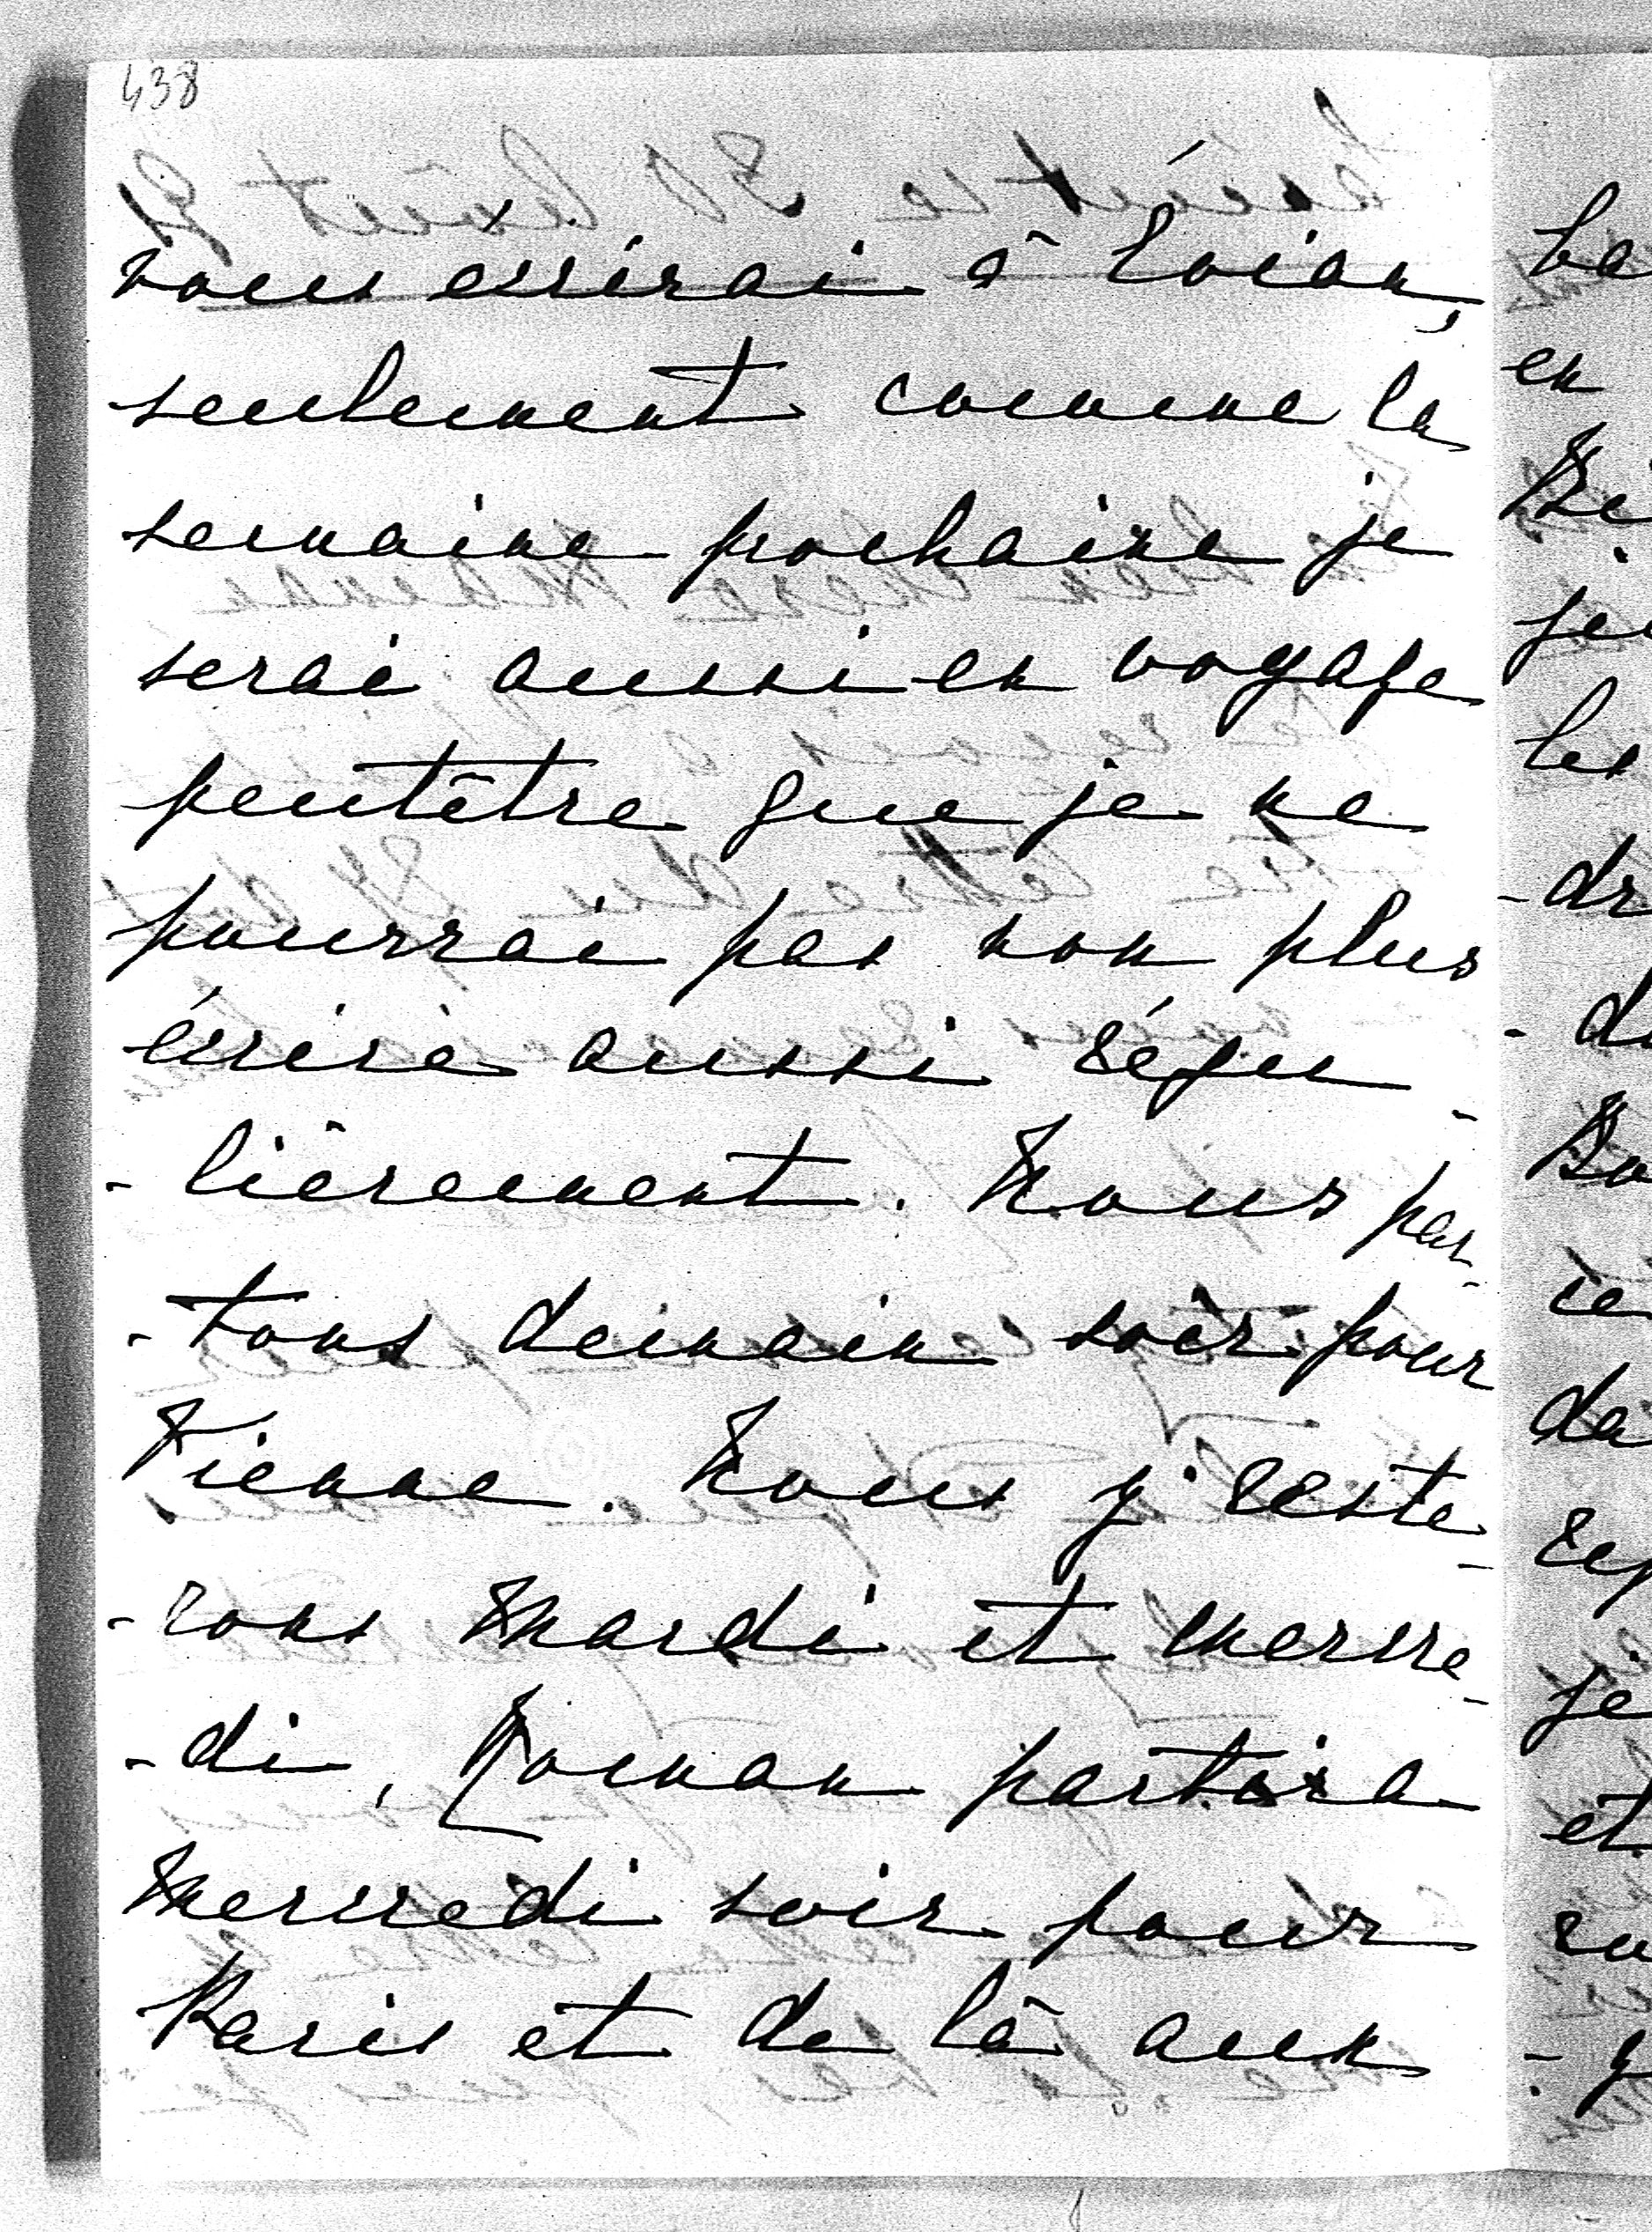 438
vous écrirai à Evian,
seulement comme la
semaine prochaine je
serai aussi en voyage
peutêtre que je ne
pourrai pas non plus
écrire aussi régu-
-lièrement. Nous par-
-tons demain soir pour
Vienne. Nous y reste-
-rons Mardi et mercre-
-di, Roman partira
Mercredi soir pour
Paris et de là aux